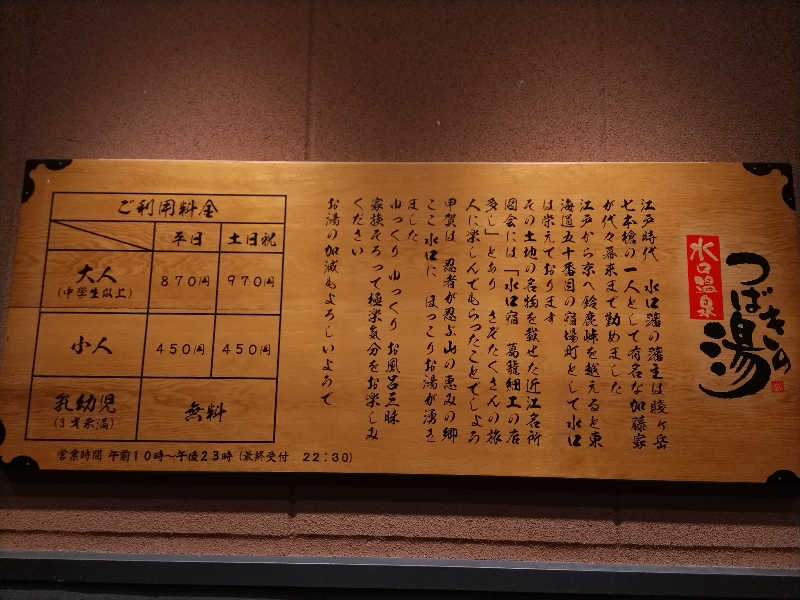 水口温泉
つばきの湯
江戸時代 水口藩の藩主は賤ヶ岳
七本槍の一人として有名な加藤家
が代々幕末まで勤めました
江戸から京へ鈴鹿峠を越えると東
海道五十番目の宿場町として水口
は栄えております
その土地の名物を載せた近江名所
図会には「水口宿 葛籠細工の店
多し」とあり さぞたくさんの旅
人に楽しんでもらったことでしょう
甲賀は 忍者が忍ぶ山の恵みの郷
ここ水口に ほっこりお湯が湧き
ました
ゆっくり ゆっくり お風呂三昧
家族そろって極楽気分をお楽しみ
ください
お湯の加減もよろしいようで
ご利用料金
平日 土日祝
大人 870円 970円
(中学生以上)
小人 450円 450円
乳幼児 無料
(3才未満)
営業時間 午前10時〜午後23時 (最終受付 22:30)